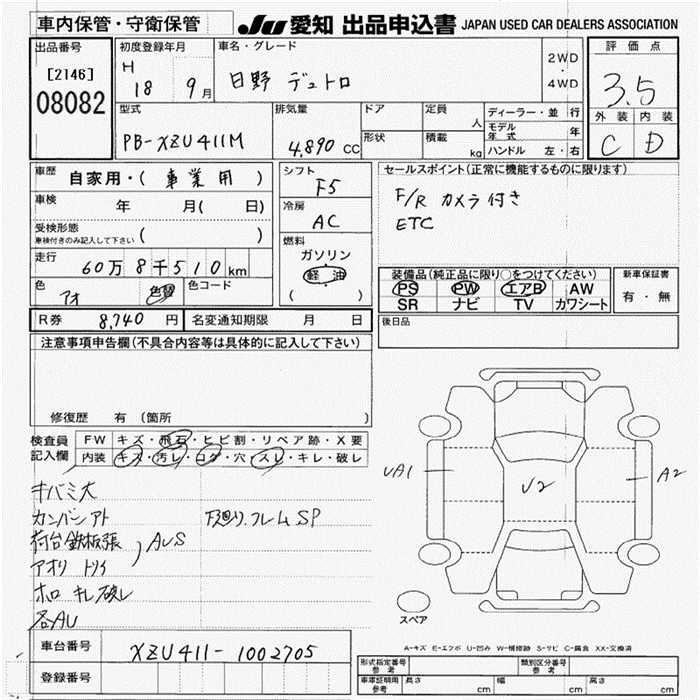 車内保管・守衛保管
JU 愛知 出品申込書 JAPAN USED CAR DEALERS ASSOCIATION
出品番号
[2146]
08082
初度登録年月
H 18 9月
車名・グレード
日野 デュトロ
2WD
・
4WD
評価点
3.5
外装 内装
C D
型式
PB-XZU411M
排気量
4,890 CC
ドア
形状
定員 人
積載 kg
ディーラー・並行
モデル年式 年
ハンドル 左・右
車歴
自家用・( 事業用 )
車検 年 月( 日)
受検形態
車検付きのみ記入して下さい ( )
走行
60万8千510km
色
アオ
色替
色コード
R券 8,740 円
名変通知期限 月 日
シフト
F5
冷房
AC
燃料
ガソリン
軽油
( )
セールスポイント(正常に機能するものに限ります)
F/R カメラ付き
ETC
装備品(純正品に限り○をつけてください)
PS PW エアB AW
SR ナビ TV カワシート
新車保証書
有・無
後日品
注意事項申告欄(不具合内容等は具体的に記入して下さい)
修復歴 有 (箇所 )
検査員記入欄
FW キズ・飛石・ヒビ割・リペア跡・X要
内装 キズ・汚レ・コゲ・穴・スレ・キレ・破レ
キバミ大
カンバンアト
荷台鉄板張
アオリ トリイ
) AUS
下廻り.フレームSP
ホロ キレ破レ
各AU
UA1
U2
A2
スペア
A-キズ E-エクボ U-凹み W-補修跡 S-サビ C-腐食 XX-交換済
車台番号
XZU411-1002705
登録番号
形式指定番号 参考
類別区分番号 参考
車庫証明用 参考
長さ cm
幅 cm
高さ cm